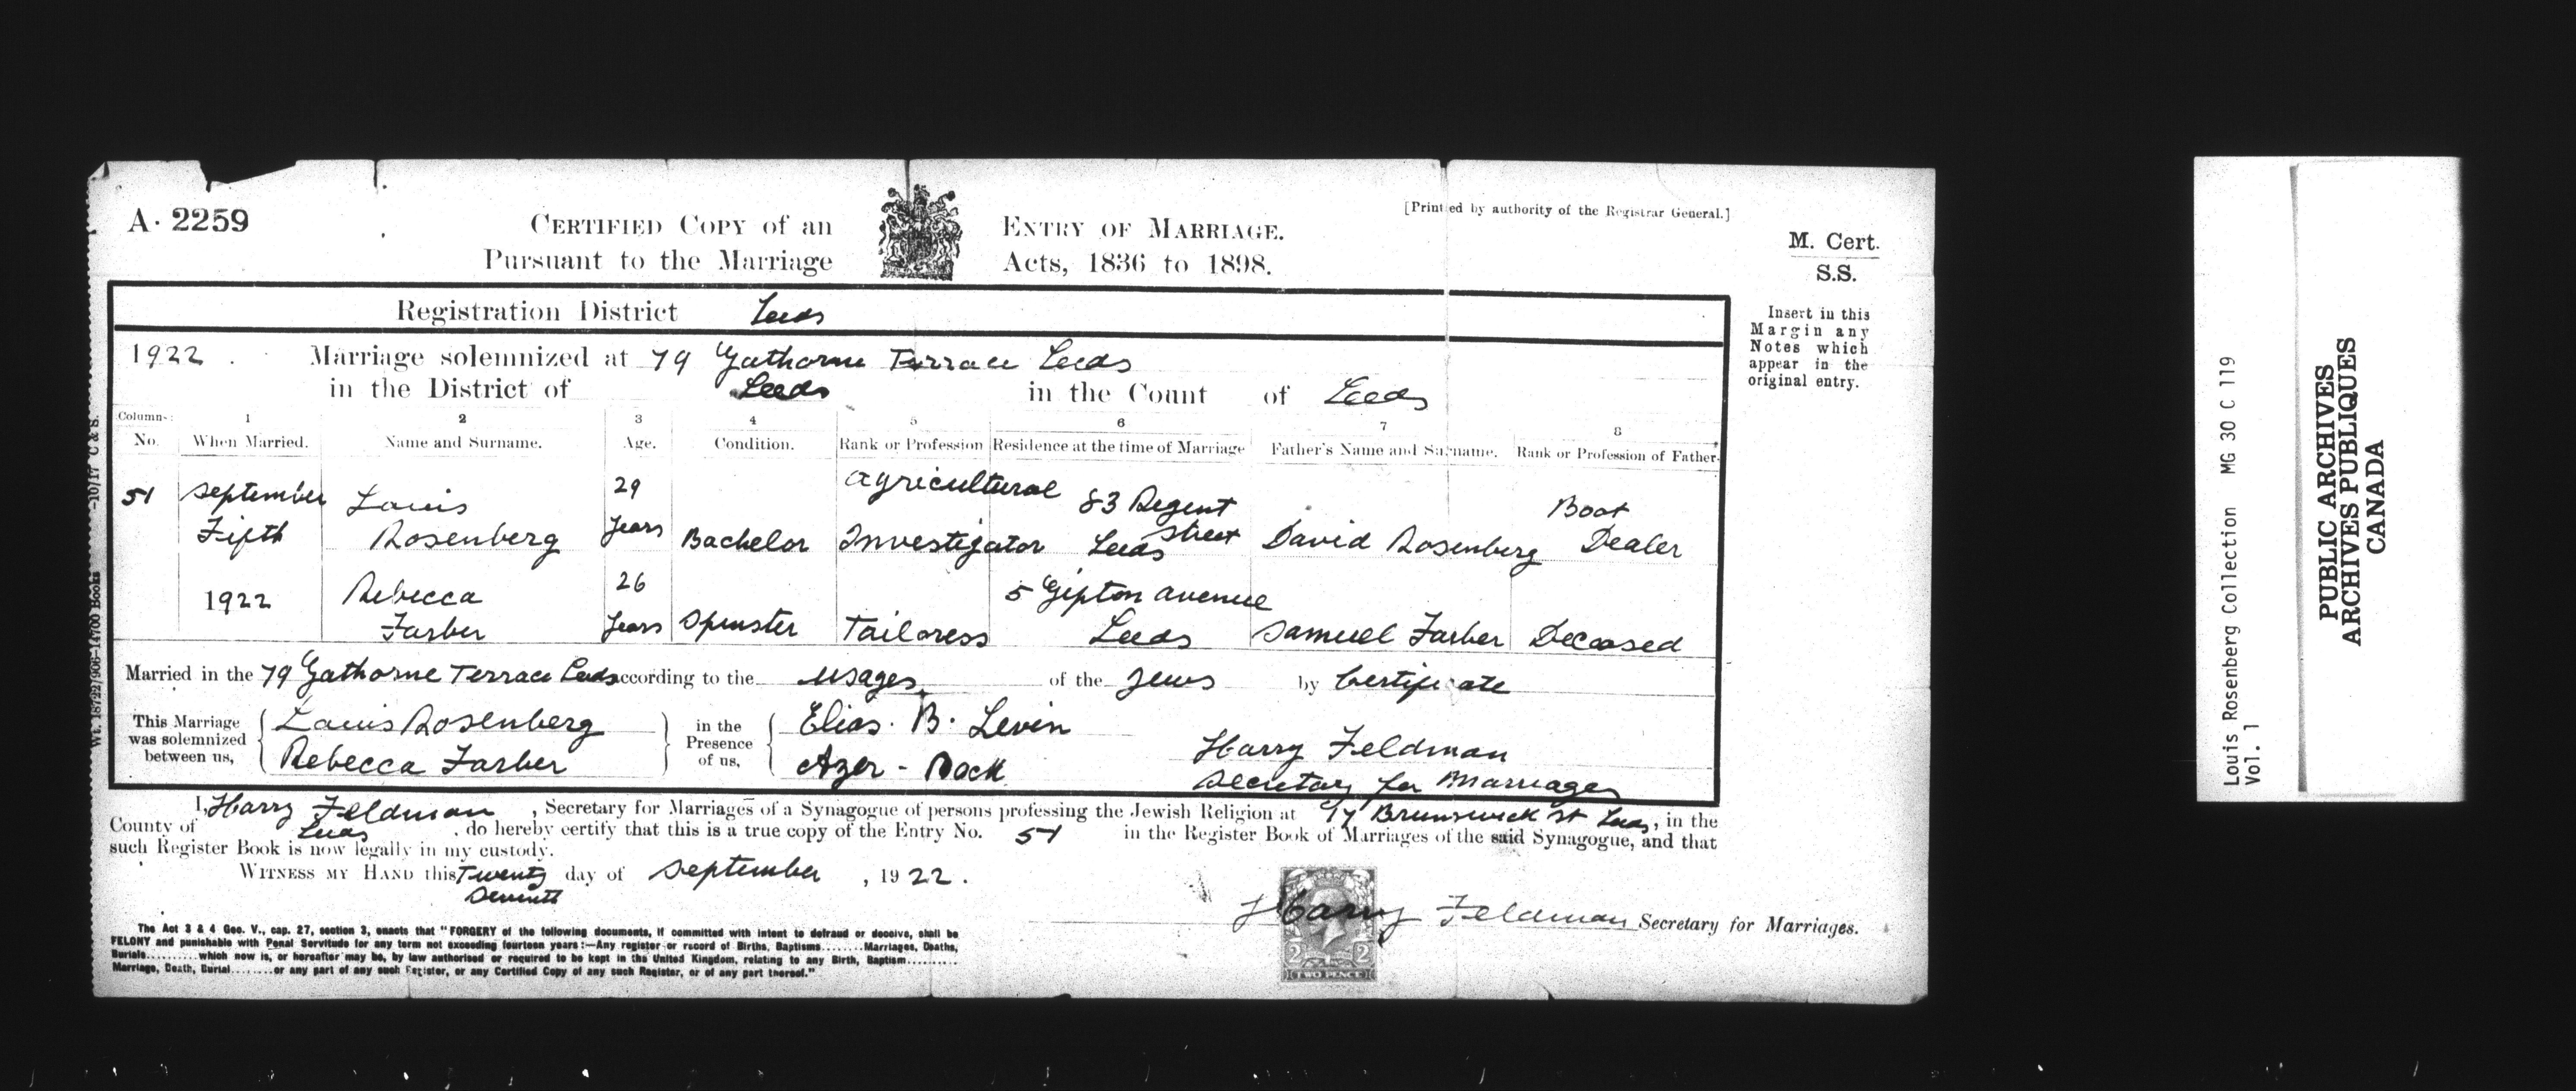 A. 2259
CERTIFIED COPY of an ENTRY OF MARRIAGE.
Pursuant to the Marriage Acts, 1836 to 1898.
[Printed by authority of the Registrar General.]
M. Cert.
S.S.
Insert in this
Margin any
Notes which
appear in the
original entry.
Registration District Leeds
1922. Marriage solemnized at 79 Gathorne Terrace Leeds
in the District of Leeds in the Count of Leeds
Columns: 1 2 3 4 5 6 7 8
No. When Married. Name and Surname. Age. Condition. Rank or Profession Residence at the time of Marriage Father's Name and Surname. Rank or Profession of Father.
51 September Louis 29 Agricultural 83 Regent Boot
Fifth Rosenberg Years Bachelor Investigator Street Leeds David Rosenberg Dealer
1922 Rebecca 26 5 Gipton Avenue
Farber Years Spinster Tailoress Leeds Samuel Farber Deceased
Married in the 79 Gathorne Terrace Leeds according to the usages of the Jews by Certificate
This Marriage
was solemnized
between us,
Louis Rosenberg
Rebecca Farber
in the
Presence
of us,
Elias. B. Levin
Azer - Dock
Harry Feldman
Secretary for Marriages
I, Harry Feldman, Secretary for Marriages of a Synagogue of persons professing the Jewish Religion at Brunswick St Leeds, in the
County of Leeds, do hereby certify that this is a true copy of the Entry No. 51 in the Register Book of Marriages of the said Synagogue, and that
such Register Book is now legally in my custody.
WITNESS MY HAND this Twenty day of September, 1922.
Seventh
Harry Feldman, Secretary for Marriages.
2 2
TWO PENCE
The Act 3 & 4 Geo. V., cap. 27, section 3, enacts that "FORGERY of the following documents, if committed with intent to defraud or deceive, shall be
FELONY and punishable with Penal Servitude for any term not exceeding fourteen years:—Any register or record of Births, Baptisms........Marriages, Deaths,
Burials..........which now is, or hereafter may be, by law authorised or required to be kept in the United Kingdom, relating to any Birth, Baptism..........
Marriage, Death, Burial........or any part of any such Register, or any Certified Copy of any such Register, or of any part thereof."
Louis Rosenberg Collection MG 30 C 119
Vol. 1
PUBLIC ARCHIVES
ARCHIVES PUBLIQUES
CANADA